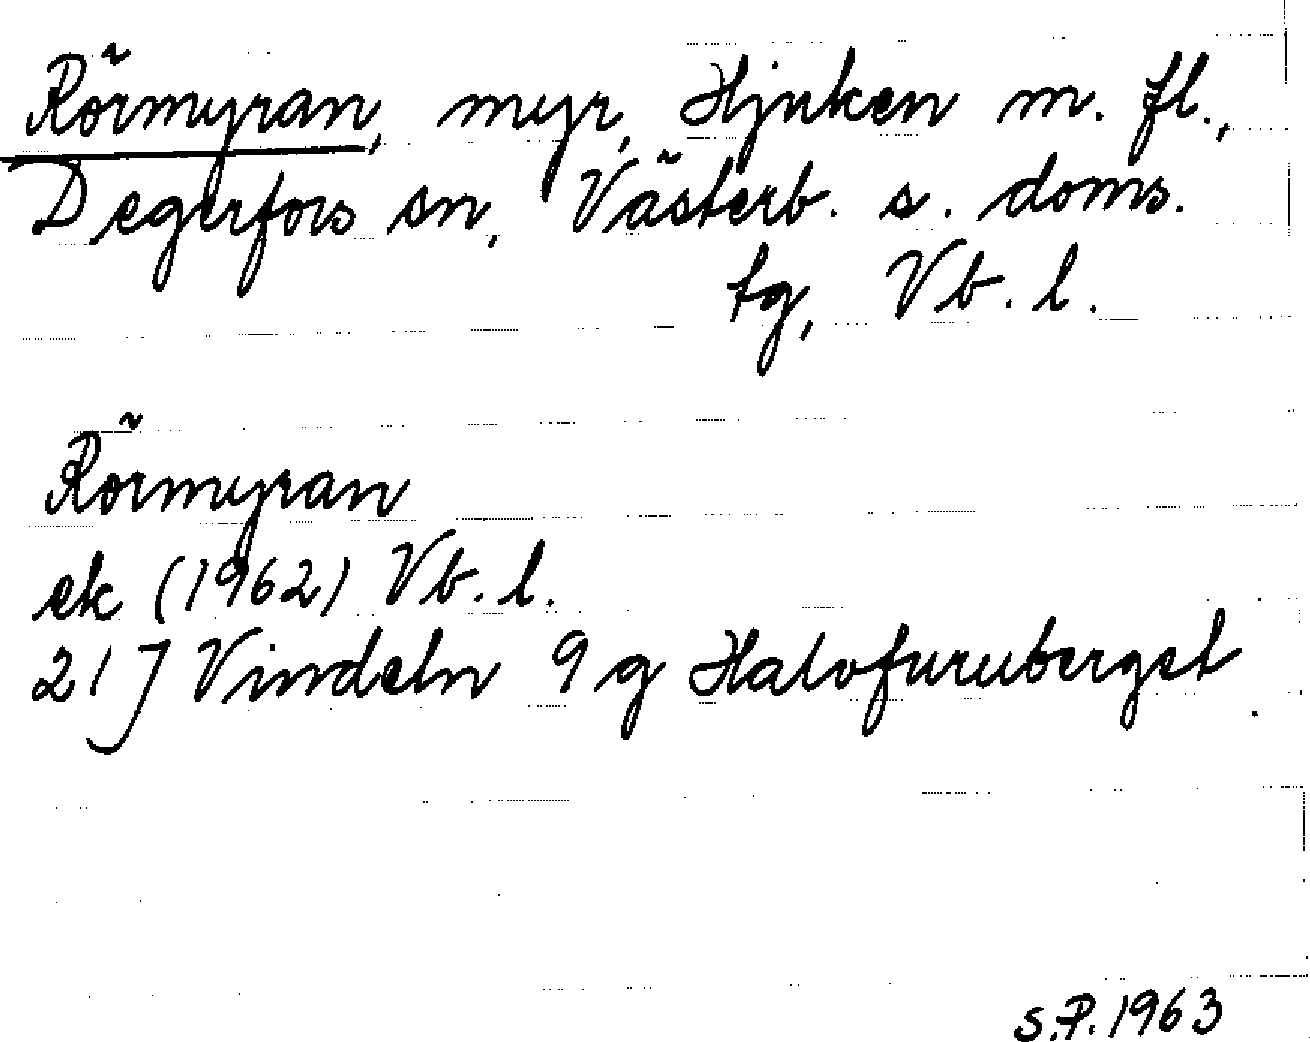 Rörmyran, myr, Hjuken m. fl.,
Degerfors sn, Västerb. s. doms.
tg, Vb. l.
Rörmyran
ek (1962) Vb. l.
21 J Vindeln 9 g Halvfuruberget
S.P. 1963